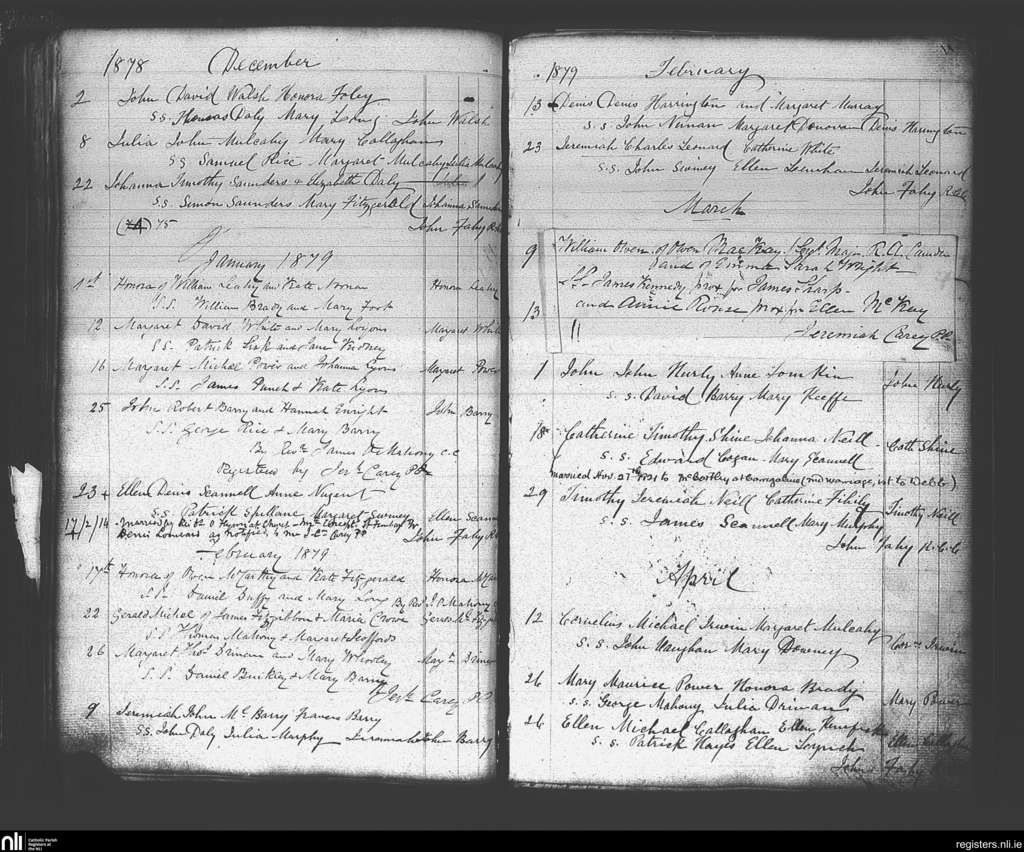 1878 December
2 John David Walsh Honora Foley
S.S. Daly Mary Long John Walsh
8 Julia John Mulcahy Mary Callaghan
SS Samuel Rice Margaret Mulcahy Julia Mulcahy
22 Johanna Timothy Saunders & Elizabeth Daly
S.S. Simon Saunders Mary Fitzgerald Johanna Saunders
75 John Fahy
January 1879
1st Honora of William Leahy and Kate Noonan Honora Leahy
S.S. William Brady and Mary Foot
12 Margaret David White and Mary Lyons Margaret White
S.S. Patrick Sisk and Jane
16 Margaret Michel Power and Johanna Lyons Margaret Power
S.S. James Punch & Kate Lyons
25 John Robert Barry and Hannah Enright John Barry
S.S. George Rice & Mary Barry
By Revd. James O Mahony C.C
Registered by Jerh. Carey PP
23 Ellen Denis Scannell Anne Nugent
S.S. Patrick Spillane Margaret Ellen Scannell
17/2/14 married by
Denis as notified to me J. C. Carey PP John Fahy
February 1879
17th Honora of Owen McCarthy and Kate Fitzgerald Honora
S.S. Daniel Duffy and Mary Long By Rev J. O Mahony
22 Gerald Michel of James Fitzgibbon & Maria Crowe
S.S. Thomas Mahony & Margaret
26 Margaret Thos. Drinan and Mary Wholey Margt.
S.S. Daniel Buckley & Mary Barry
Jerh. Carey P.P.
9 Jeremiah John Mc Barry Frances Barry
SS. John Daly Julia Murphy John Barry
1879 February
13 Denis Denis Harrington and Margaret Murray
S.S. John Margaret Donovan Denis Harrington
23 Jeremiah Charles Leonard Catherine White
S.S. John Ellen Jeremiah Leonard
John Fahy
March
9 William Owen of Owen MacKay Sergt. Major R.A. Camden
and of Emma Sarah Wright
S.S. James Kennedy prox for James Sharp
13 and Annie prox for Ellen McKay
Jeremiah Carey P.P.
1 John John Hurly Anne John Hurly
S.S. David Barry Mary Keeffe
18 Catherine Timothy Shine Johanna Neill Cath Shine
S.S. Edward Cogan Mary Scannell
married Nov. 27th 1921 to at Carrigaline (2nd marriage, 1st to )
29 Timothy Jeremiah Neill Catherine Timothy Neill
S.S. James Scannell Mary Murphy
John Fahy R.C.C
April
12 Cornelius Michael Irwin Margaret Mulcahy Cors. Irwin
S.S. John Mary
26 Mary Maurice Power Honora Brady
S.S. George Mahony Julia Drinan Mary Power
26 Ellen Michael Callaghan Ellen Ellen Callaghan
S.S. Patrick Hayes Ellen
John Fahy
nli
Catholic Parish
Registers at
the NLI
registers.nli.ie